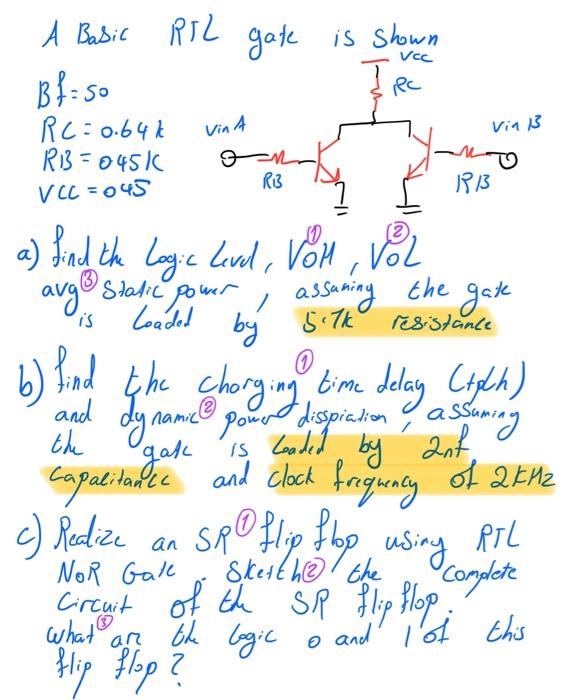 A Basic RTL gate is shown
VCC
RC
Bf=50
RC=0.64k
RB=045K
VCC=045
vin A
RB
vin B
RB
a) find the logic level, VOH ①, VOL ②
avg ③ static power, assuming the gate
is loaded by 5.7k resistance
b) find the charging ① time delay (tplh)
and dynamic ② power disspiation, assuming
the gate is loaded by 2nf
capacitance and clock frequency of 2KHz
c) Realize an SR ① flip flop using RTL
NOR Gate. Sketch ② the complete
circuit of the SR flip flop.
what ③ are the logic 0 and 1 of this
flip flop?